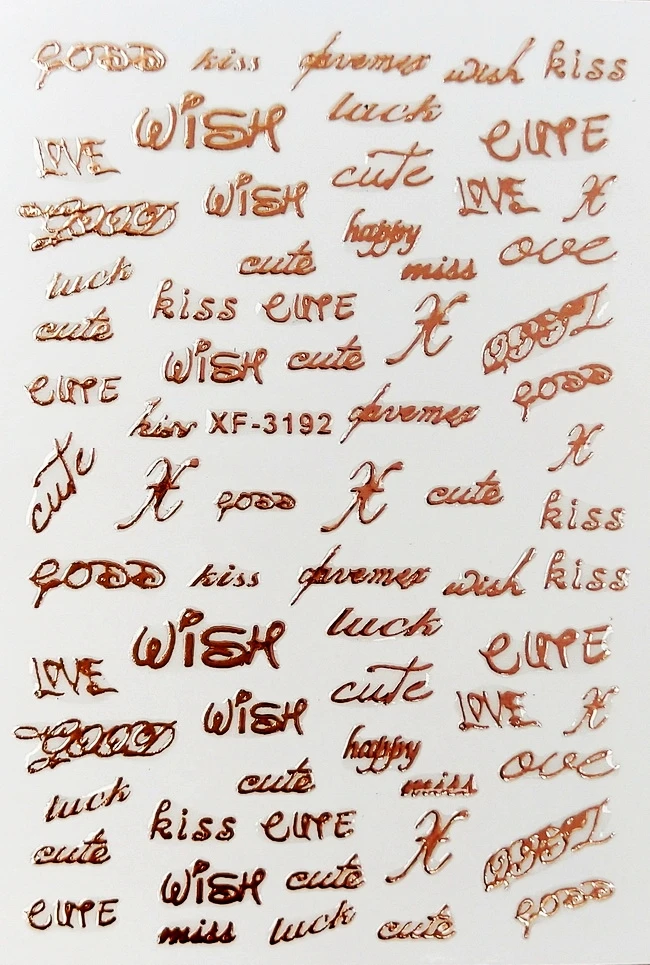 GOOD kiss wish kiss
WISH luck CUTE
LOVE cute
WISH LOVE X
GOOD happy ove
cute miss
luck
kiss CUTE X
cute
WISH cute
CUTE GOOD
kiss XF-3192
cute X
X GOOD X cute kiss
GOOD kiss wish kiss
WISH luck CUTE
LOVE cute
WISH LOVE X
GOOD happy ove
cute miss
luck
kiss CUTE X
cute
WISH cute
CUTE GOOD
miss luck cute